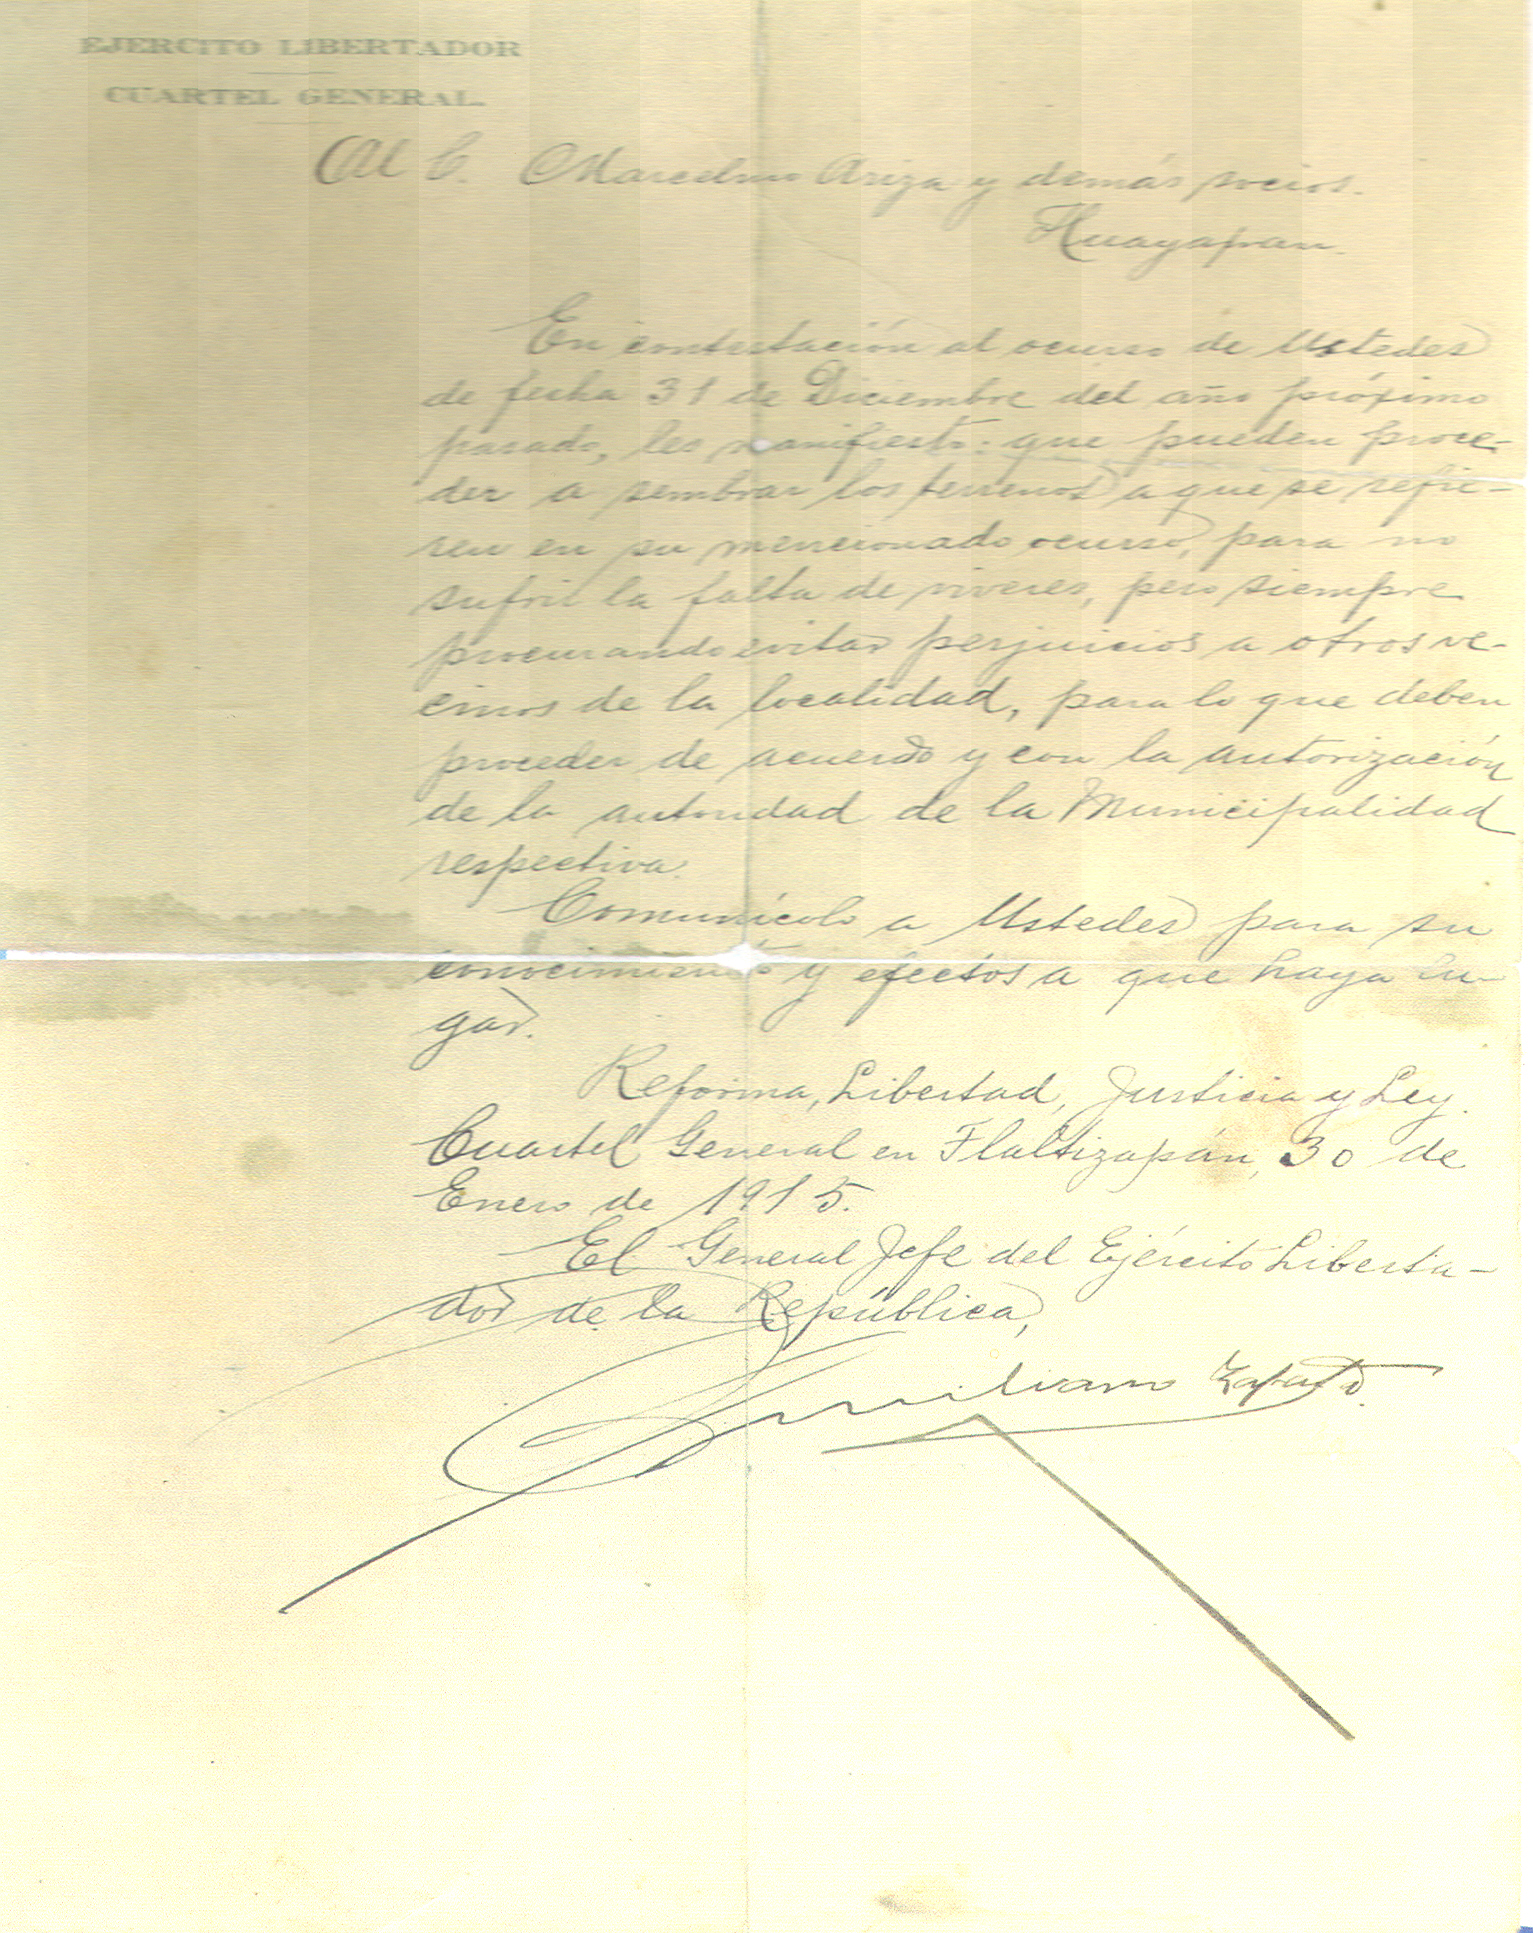 EJERCITO LIBERTADOR
CUARTEL GENERAL.
Al C. Marcelino Ariza y demás socios.
Hueyapan.
En contestación al ocurso de Ustedes
de fecha 31 de Diciembre del año próximo
pasado, les manifiesto: que pueden proce-
der a sembrar los terrenos a que se refie-
ren en su mencionado ocurso, para no
sufrir la falta de viveres, pero siempre
procurando evitar perjuicios a otros ve-
cinos de la localidad, para lo que deben
proceder de acuerdo y con la autorización
de la autoridad de la Municipalidad
respectiva.
Comunícolo a Ustedes para su
conocimiento y efectos a que haya lu-
gar.
Reforma, Libertad, Justicia y Ley.
Cuartel General en Tlaltizapán, 30 de
Enero de 1915.
El General Jefe del Ejército Liberta-
dor de la República,
Emiliano Zapata.